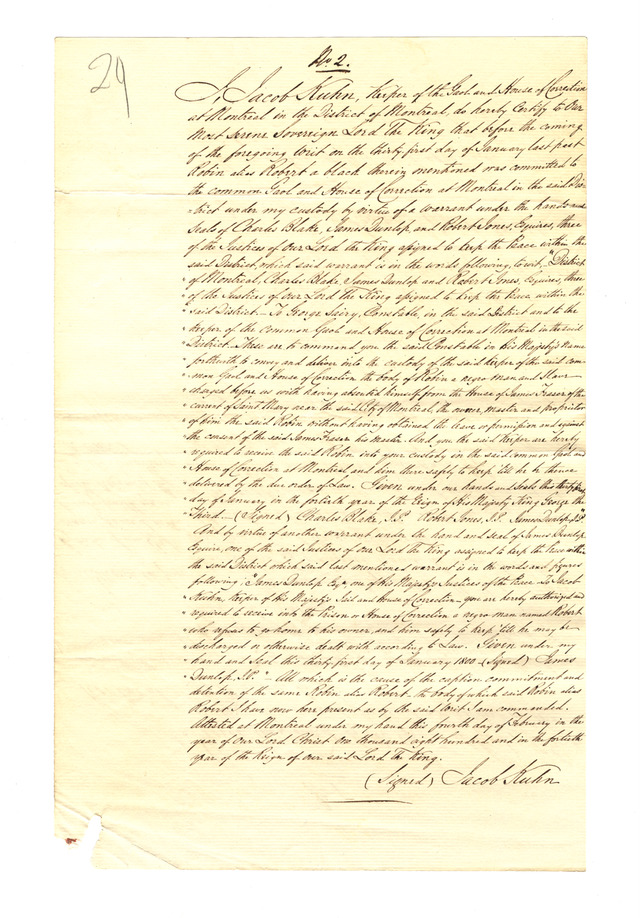 29
No 2.
I, Jacob Kuhn, Keeper of the Gaol and House of Correction
at Montreal in the District of Montreal, do hereby Certify to Our
Most Serene Sovereign Lord The King that before the coming
of the foregoing writ on the thirty first day of January last past
Robin alias Robert a black therein mentioned was committed to
the common Gaol and House of Correction at Montreal in the said Dis
-trict under my custody by virtue of a warrant under the hands and
Seals of Charles Blake, James Dunlop and Robert Jones, Esquires, three
of the Justices of Our Lord the King assigned to keep the Peace within the
said District, which said warrant is in the words following, to wit, "District
" of Montreal, Charles Blake, James Dunlop and Robert Jones, Esquires, three
" of the Justices of our Lord the King assigned to keep the peace within the
" said District — To George Constable, in the said District and to the
" keeper of the common Gaol and House of Correction at Montreal in the said
" District — These are to command you the said Constable in His Majesty's name
" forthwith to convey and deliver into the custody of the said keeper of the said com-
" mon Gaol and House of Correction the body of Robin a negro man and Slave —
" charged before us with having absented himself from the House of James Fraser of the
" current of Saint Mary near the said City of Montreal, the owner, master and proprietor
" of him the said Robin without having obtained the leave or permission and against
" the consent of the said James Fraser his master. And you the said Keeper are hereby
" required to receive the said Robin into your custody in the said common Gaol and
" House of Correction at Montreal and him there safely to keep till he be thence
" delivered by the due order of Law. Given under our hands and Seals this thirty first
" day of January in the fortieth year of the Reign of His Majesty King George the
" Third — (Signed) Charles Blake, J.P. Robert Jones, J.P. James Dunlop, J.P."
And by virtue of another warrant under the hand and seal of James Dunlop
Esquire, one of the said Justices of our Lord the King assigned to keep the peace within
the said District which said last mentioned warrant is in the words and figures
following; "James Dunlop Esqr, one of His Majesty's Justices of the Peace To Jacob
" Kuhn, Keeper of His Majesty's Gaol and House of Correction — you are hereby authorized and
" required to receive into the Prison or House of Correction a negro man named Robert
" who refuses to go home to his owner, and him safely to keep till he may be —
" discharged or otherwise dealt with according to Law. Given under my
" hand and Seal this thirty first day of January 1800 — (Signed) James
" Dunlop, J.P." — All which is the cause of the caption commitment and
detention of the same Robin alias Robert the body of which said Robin alias
Robert I have now here present as by the said Writ I am commanded.
Attested at Montreal under my hand this fourth day of February in the
year of Our Lord Christ One thousand eight hundred and in the fortieth
year of the Reign of our said Lord the King.
(Signed) Jacob Kuhn